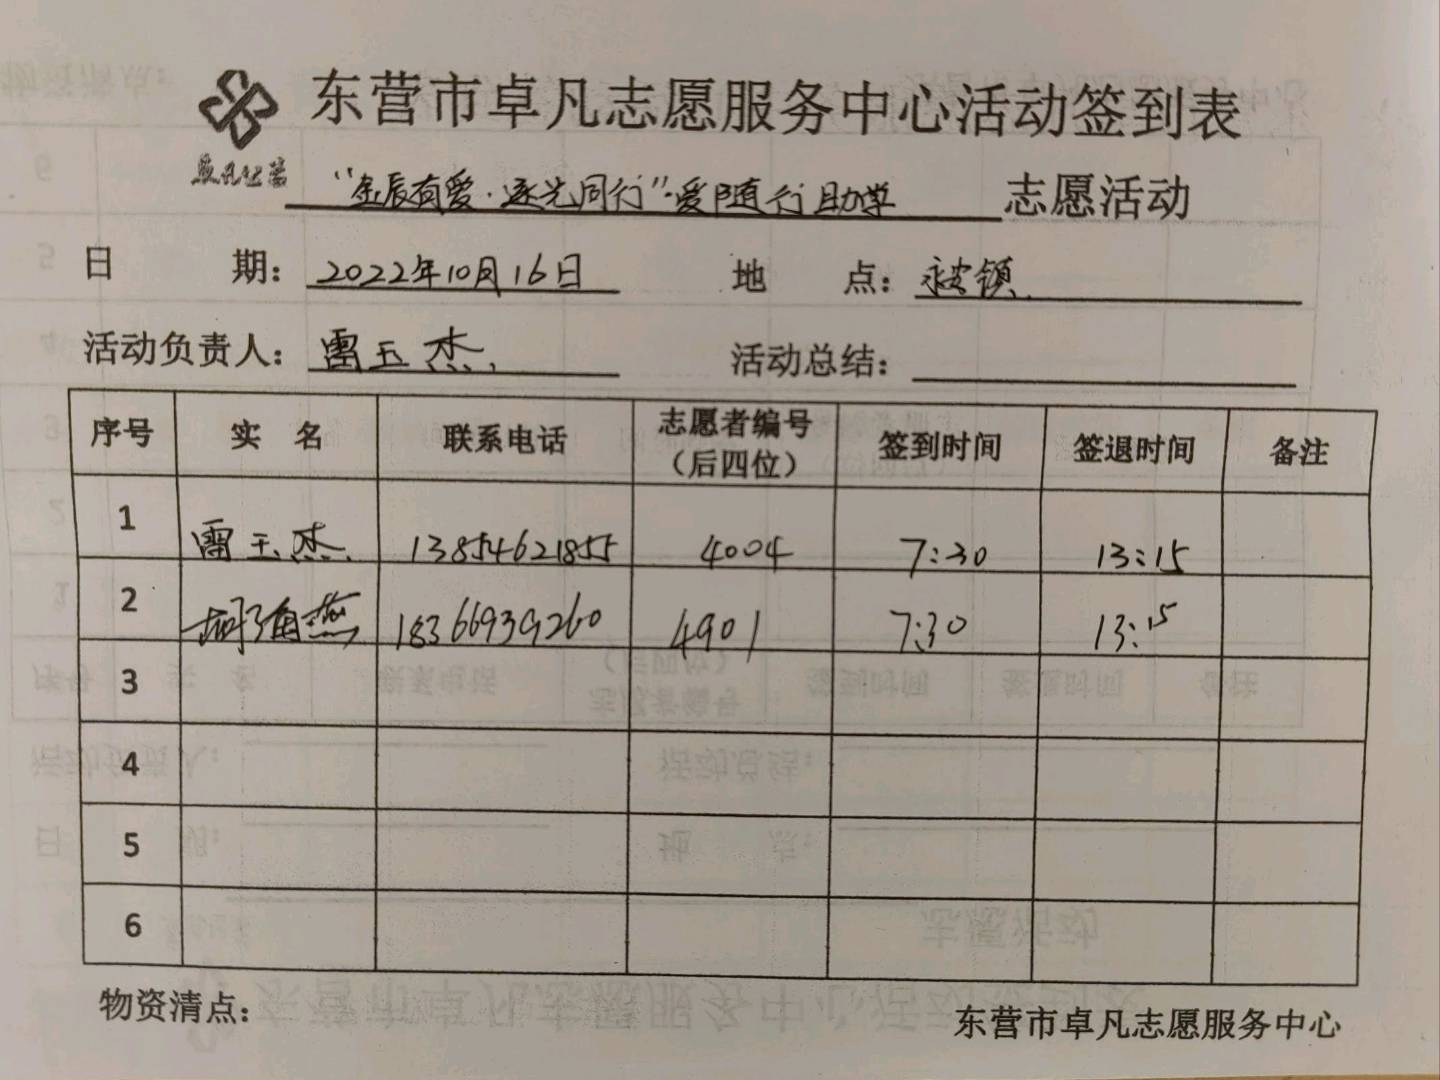 东营市卓凡志愿服务中心活动签到表
卓凡公益
“金辰有爱·逐光同行”-爱随行助学 志愿活动
日 期：2022年10月16日 地 点：永安镇
活动负责人：雷玉杰 活动总结：
序号 实 名 联系电话 志愿者编号（后四位） 签到时间 签退时间 备注
1 雷玉杰 13854621855 4004 7:30 13:15
2 燕 18366939260 4901 7:30 13:15
3
4
5
6
物资清点： 东营市卓凡志愿服务中心